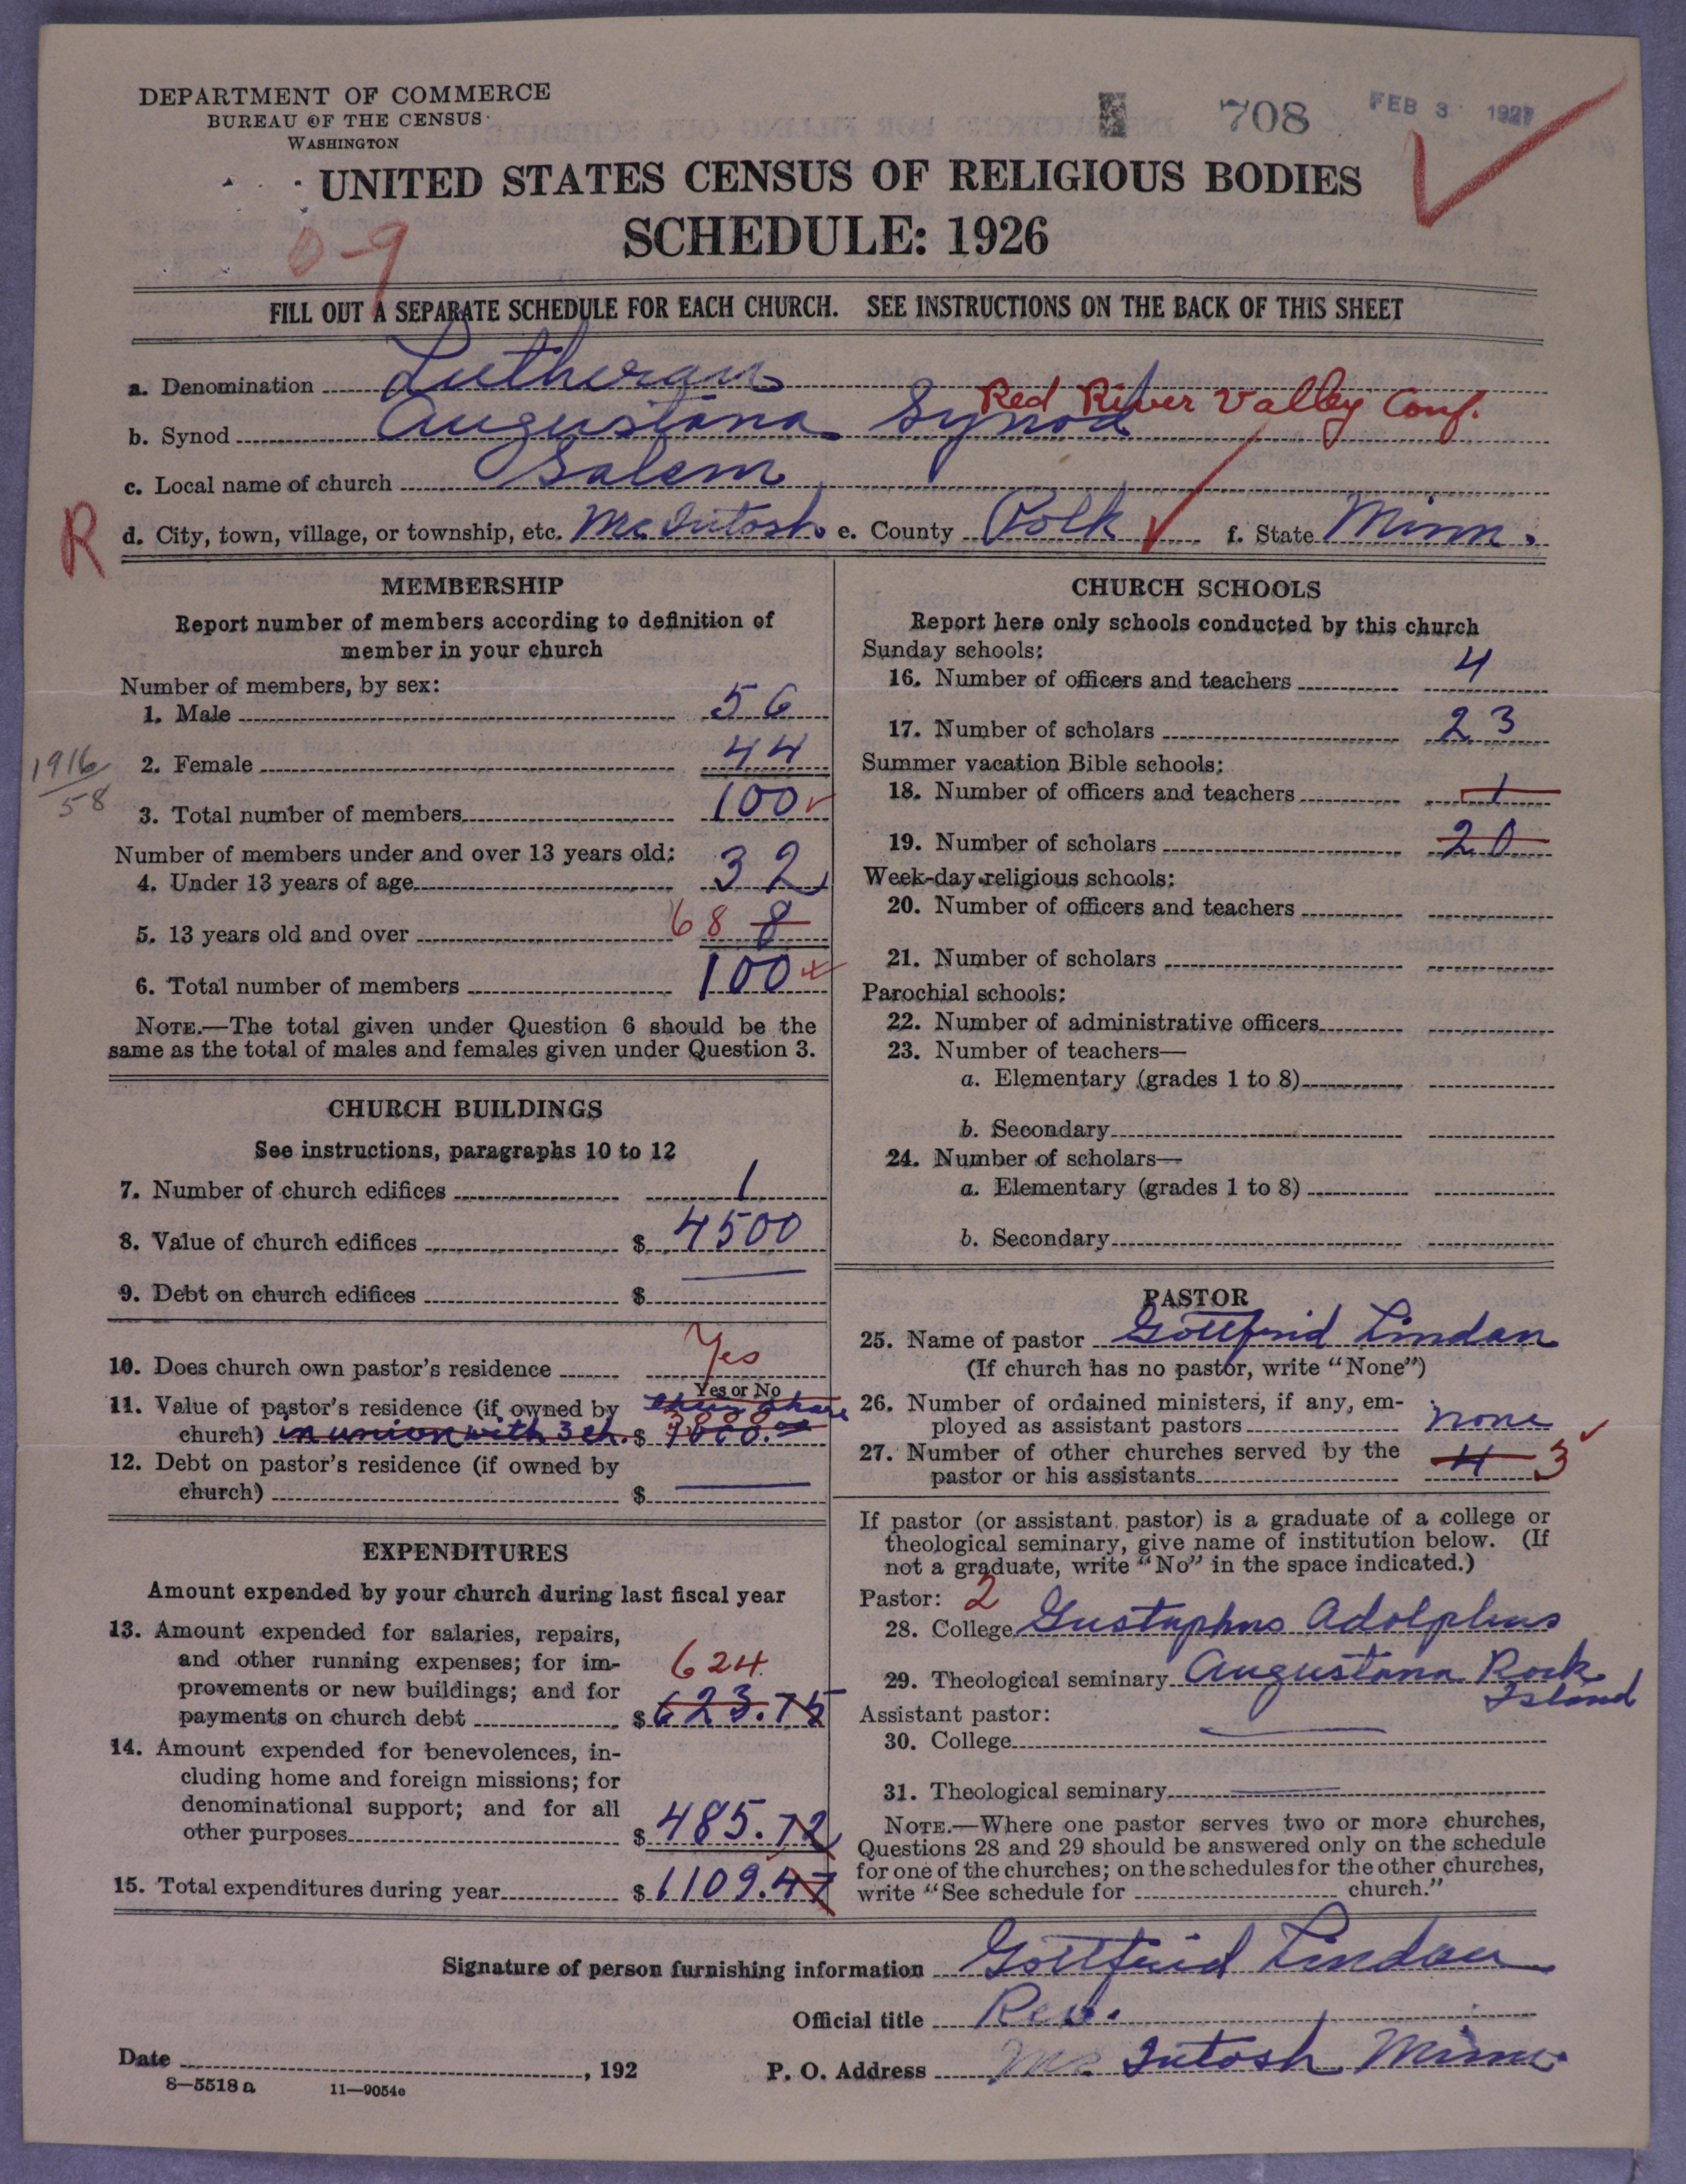 DEPARTMENT OF COMMERCE
BUREAU OF THE CENSUS
WASHINGTON
708
FEB 3 1927
UNITED STATES CENSUS OF RELIGIOUS BODIES
SCHEDULE: 1926
0-9
FILL OUT A SEPARATE SCHEDULE FOR EACH CHURCH. SEE INSTRUCTIONS ON THE BACK OF THIS SHEET
a. Denomination Lutheran
Red River Valley Conf.
b. Synod Augustana Synod
c. Local name of church Salem
R
d. City, town, village, or township, etc. McIntosh e. County Polk f. State Minn.
MEMBERSHIP
Report number of members according to definition of
member in your church
Number of members, by sex:
1. Male 56
2. Female 44
1916
58
3. Total number of members 100
Number of members under and over 13 years old:
4. Under 13 years of age 32
5. 13 years old and over 68 8
6. Total number of members 100
NOTE.—The total given under Question 6 should be the
same as the total of males and females given under Question 3.
CHURCH BUILDINGS
See instructions, paragraphs 10 to 12
7. Number of church edifices 1
8. Value of church edifices $ 4500
9. Debt on church edifices $
10. Does church own pastor's residence Yes
Yes or No
11. Value of pastor's residence (if owned by
church) in union with 3 ch. $
12. Debt on pastor's residence (if owned by
church) $
EXPENDITURES
Amount expended by your church during last fiscal year
13. Amount expended for salaries, repairs,
and other running expenses; for im-
provements or new buildings; and for
624
payments on church debt $ 623.75
14. Amount expended for benevolences, in-
cluding home and foreign missions; for
denominational support; and for all
other purposes $ 485.72
15. Total expenditures during year $ 1109.47
CHURCH SCHOOLS
Report here only schools conducted by this church
Sunday schools:
16. Number of officers and teachers 4
17. Number of scholars 23
Summer vacation Bible schools:
18. Number of officers and teachers 1
19. Number of scholars 20
Week-day religious schools:
20. Number of officers and teachers
21. Number of scholars
Parochial schools:
22. Number of administrative officers
23. Number of teachers—
a. Elementary (grades 1 to 8)
b. Secondary
24. Number of scholars—
a. Elementary (grades 1 to 8)
b. Secondary
PASTOR
25. Name of pastor Gottfrid Lindan
(If church has no pastor, write "None")
26. Number of ordained ministers, if any, em-
ployed as assistant pastors none
27. Number of other churches served by the
pastor or his assistants 4 3
If pastor (or assistant pastor) is a graduate of a college or
theological seminary, give name of institution below. (If
not a graduate, write "No" in the space indicated.)
Pastor: 2
28. College Gustaphus Adolphus
29. Theological seminary Augustana Rock
Island
Assistant pastor:
30. College
31. Theological seminary
NOTE.—Where one pastor serves two or more churches,
Questions 28 and 29 should be answered only on the schedule
for one of the churches; on the schedules for the other churches,
write "See schedule for church."
Signature of person furnishing information Gottfrid Lindan
Official title Rev.
Date , 192 P. O. Address McIntosh Minn.
8—5518 a 11—9054e